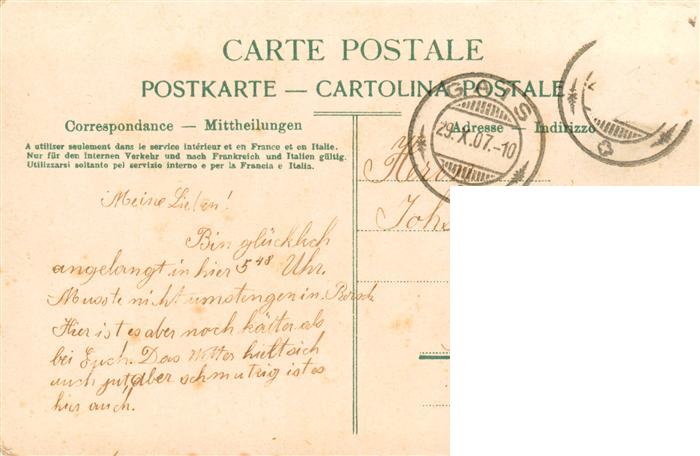 CARTE POSTALE
POSTKARTE — CARTOLINA POSTALE
Correspondance — Mittheilungen
A utiliser seulement dans le service intérieur et en France et en Italie.
Nur für den internen Verkehr und nach Frankreich und Italien gültig.
Utilizzarsi soltanto pel servizio interno e per la Francia e Italia.
Adresse — Indirizzo
GAIS
29.X.07.-10
Meine Lieben!
Bin glücklich
angelangt in hier 5 48 Uhr.
Musste nicht umsteigen in
Hier ist es aber noch kälter als
bei Euch. Das Wetter hielt sich
auch gut, aber schmutzig ist es
hier auch.